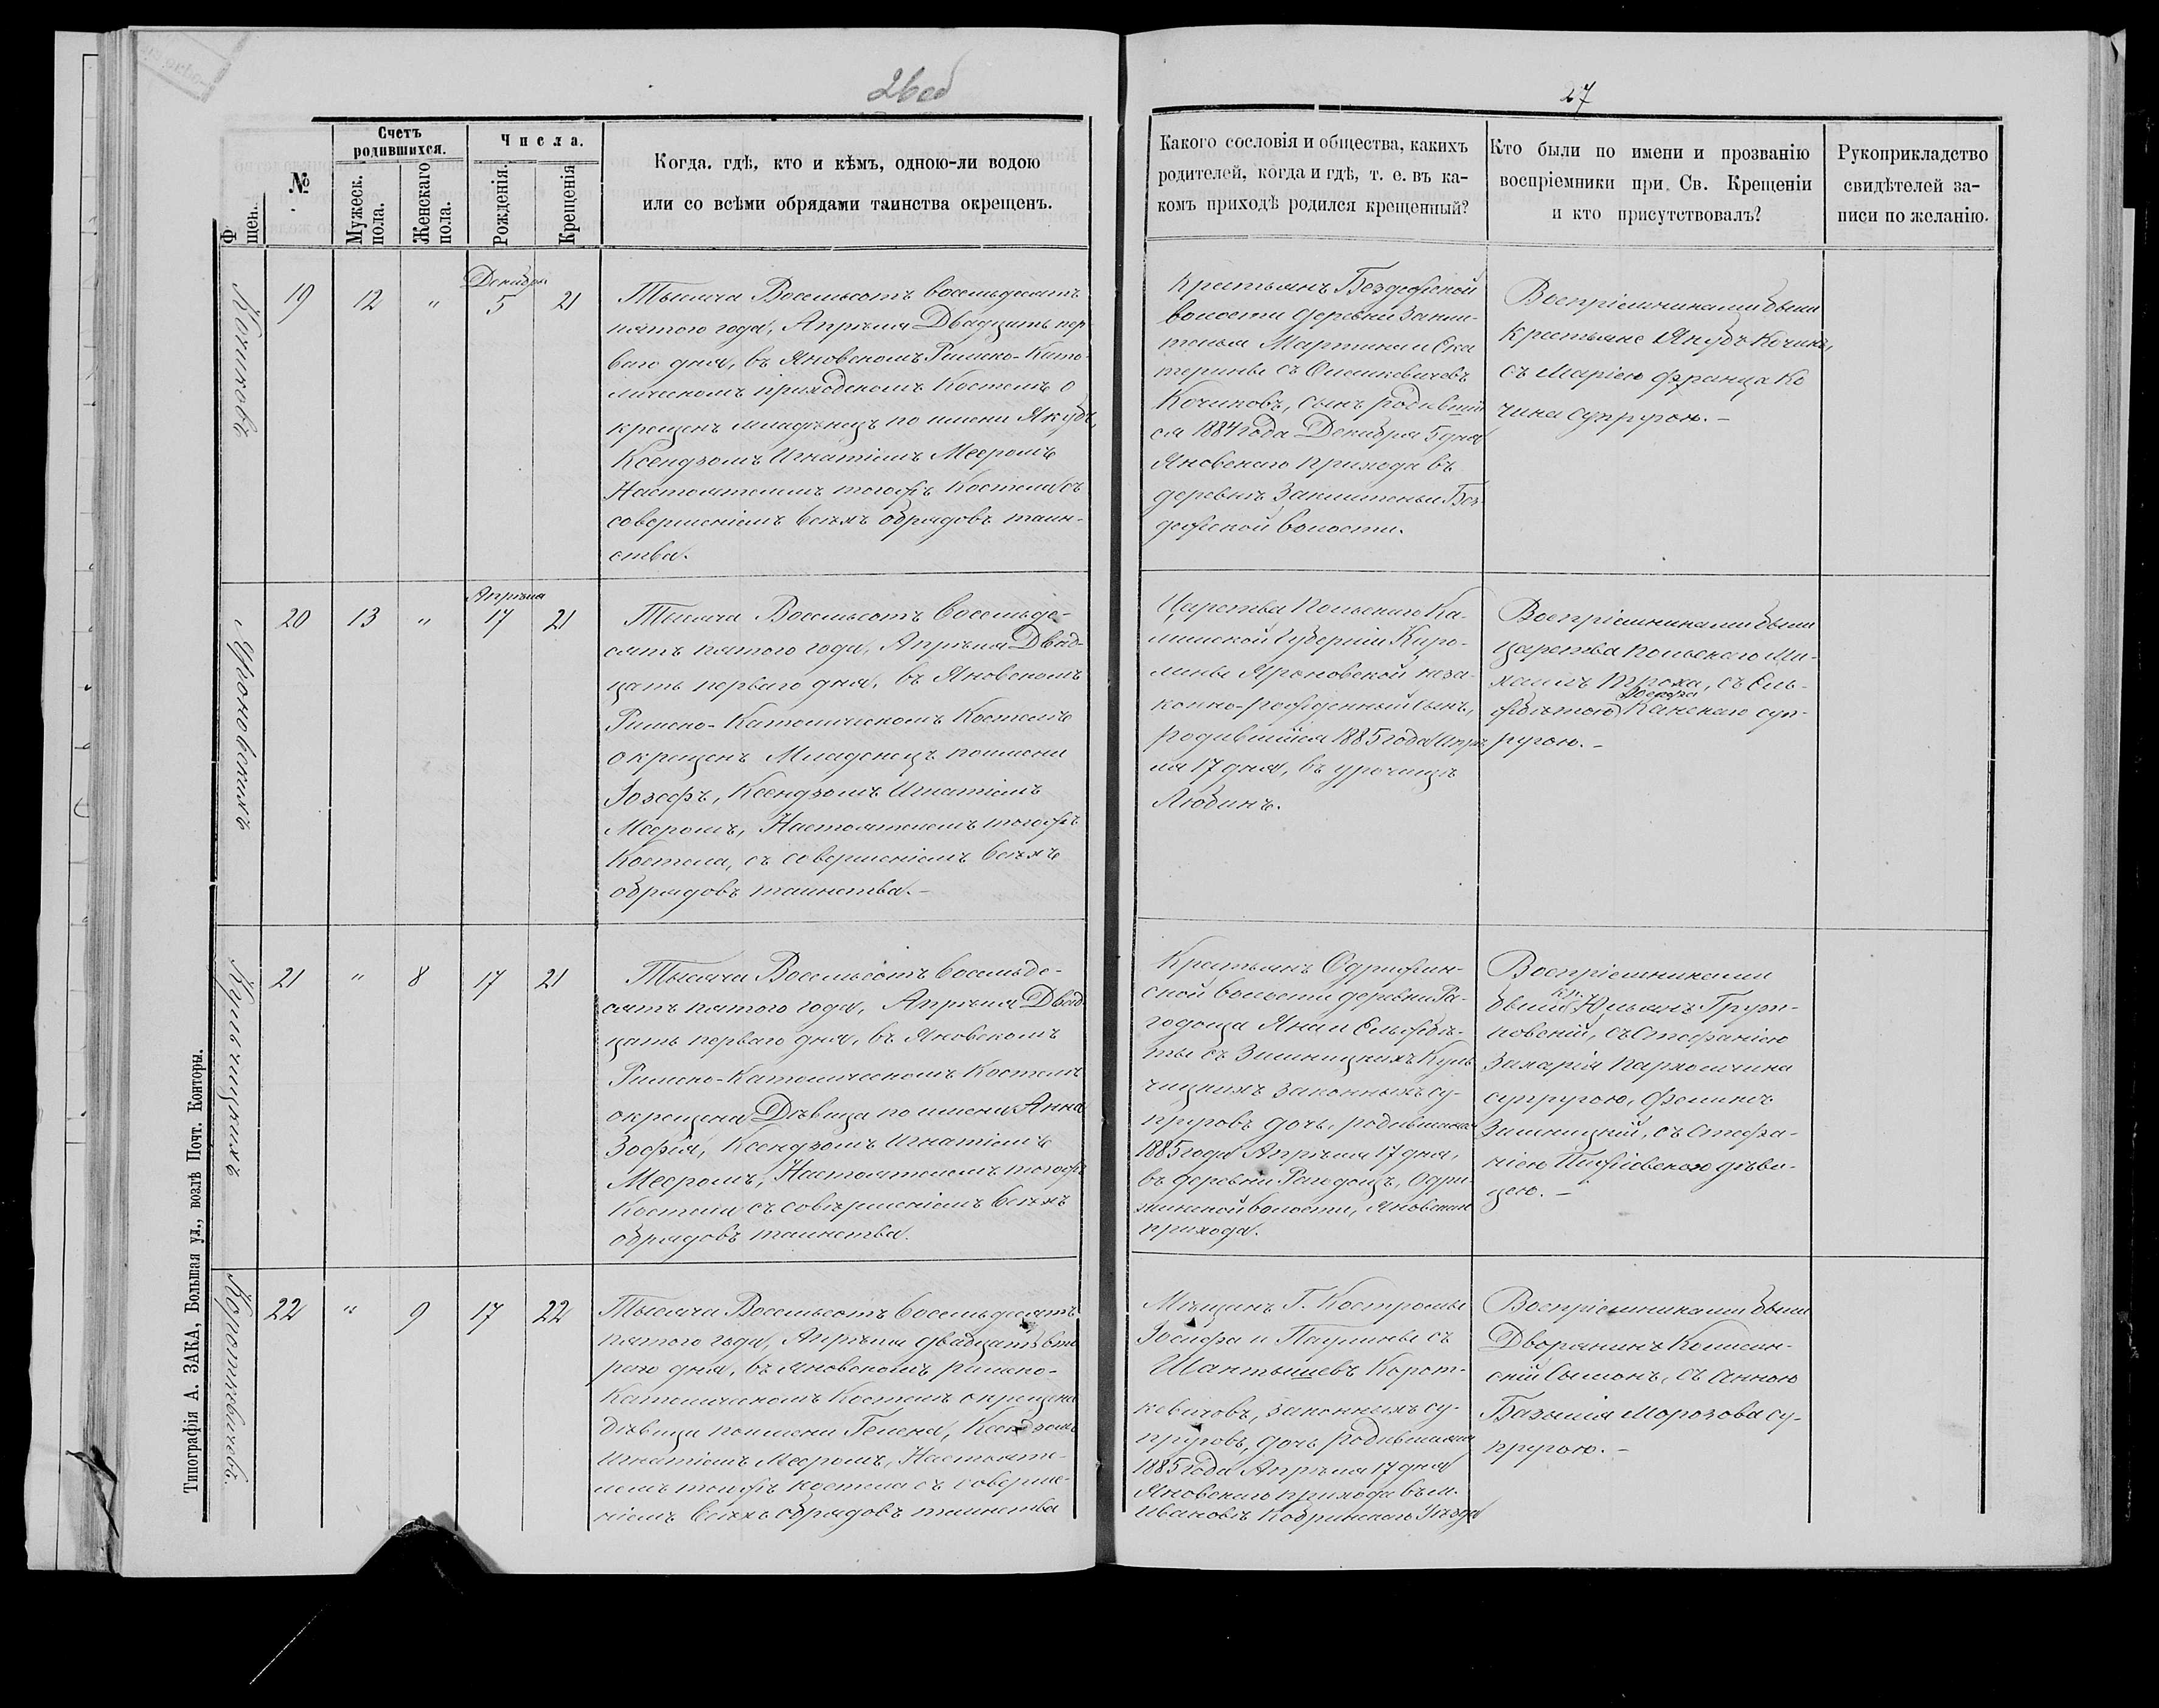 26 об
27
№
Счетъ
родившихся.
Мужеск.
пола.
Женскаго
пола.
Числа.
Рожденія.
Крещенія
Когда. гдѣ, кто и кѣмъ, одною-ли водою
или со всѣми обрядами таинства окрещенъ.
Какого сословія и общества, какихъ
родителей, когда и гдѣ, т. е. въ ка-
комъ приходѣ родился крещенный?
Кто были по имени и прозванію
воспріемники при Св. Крещеніи
и кто присутствовалъ?
Рукоприкладство
свидѣтелей за-
писи по желанію.
Кочиковъ
19
12
"
Декабря
5
21
Тысяча Восемьсотъ восемьдесятъ
пятого года, Апрѣля Двадцать пер-
ваго дня, въ Яновскомъ Римско-Като-
лическомъ приходскомъ Костелѣ о
крещенъ младенецъ по имени Якубъ,
Ксендзомъ Игнатіемъ Мееромъ
Настоятелемъ тогожъ Костела съ
совершеніемъ всѣхъ обрядовъ таин-
ства.
Крестьянъ Бездежской
волости деревни
Мартина и Ека
терины съ
Кочиковъ, сынъ родивший
ся 1884 года Декабря 5 дня
Яновскаго прихода въ
деревнѣ Без-
дежской волости.
Воспріемниками были
крестьяне Якубъ
съ Маріею Франца Ко
чика супругою.-
Яроновскихъ
20
13
"
Апрѣля
17
21
Тысяча Восемьсотъ восемьде-
сятъ пятого года, Апрѣля Двад-
цать перваго дня, въ Яновскомъ
Римско-Католическомъ Костелѣ
окрещенъ Младенецъ по имени
Іозефъ, Ксендзомъ Игнатіемъ
Мееромъ, Настоятелемъ тогожъ
Костела, съ совершеніемъ всѣхъ
обрядовъ таинства.-
Царства Польскаго Ка-
лишской Губерніи Каро-
лины Яроновской неза-
конно-рожденный сынъ,
родившійся 1885 года Апрѣ
ля 17 дня, въ урочищѣ
Любинъ.
Воспріемниками были
Царства Польскаго Ми-
хаилъ съ Ель-
жбѣтою суп-
ругою.-
Кульчицкихъ
21
"
8
17
21
Тысяча Восемьсотъ восемьде-
сятъ пятого года, Апрѣля Двад
цать перваго дня, въ Яновскомъ
Римско-Католическомъ Костелѣ
окрещена Дѣвица по имени Анна
Зофія, Ксендзомъ Игнатіемъ
Мееромъ, Настоятелемъ тогожъ
Костела съ совершеніемъ всѣхъ
обрядовъ таинства.
Крестьянъ Одрижин-
ской волости деревни Ра-
годоща Яна и Ельжбѣ-
ты съ Зимницкихъ Куль
чицкихъ законныхъ су-
пруговъ дочь, родившаяся
1885 года Апрѣля 17 дня,
въ деревни Рагодощъ, Одри-
жинской волости, Яновскаго
прихода.
Воспріемниками
были Юльянъ
съ Стефаніею
Захарія Пархомчика
супругою, Феликсъ
Зимницкій, съ Стефа-
ніею дѣви-
цею.-
Короткевичевъ.
22
"
9
17
22
Тысяча Восемьсотъ восемьдесятъ
пятого года, Апрѣля двадцать вто
раго дня, въ Яновскомъ римско-
Католическомъ Костелѣ окрещена
дѣвица по имени Гелена, Ксендзомъ
Игнатіемъ Мееромъ, Настояте-
лемъ тогожъ костела съ соверше-
ніемъ всѣхъ обрядовъ таинства
Мѣщанъ Г. Костромы
Іосифа и Паулины съ
Шантышевъ Корот-
кевичовъ, законныхъ су-
пруговъ, дочь родившаяся
1885 года Апрѣля 17 дня
Яновскаго прихода въ м.
Ивановѣ Кобринскаго Уѣзда
Воспріемниками были
Дворянинъ
скій Сымонъ, съ Анною
Базылія Морозова су-
пругою.-
Типографія А. ЗАКА, Большая ул., возлѣ Почт. Конторы.